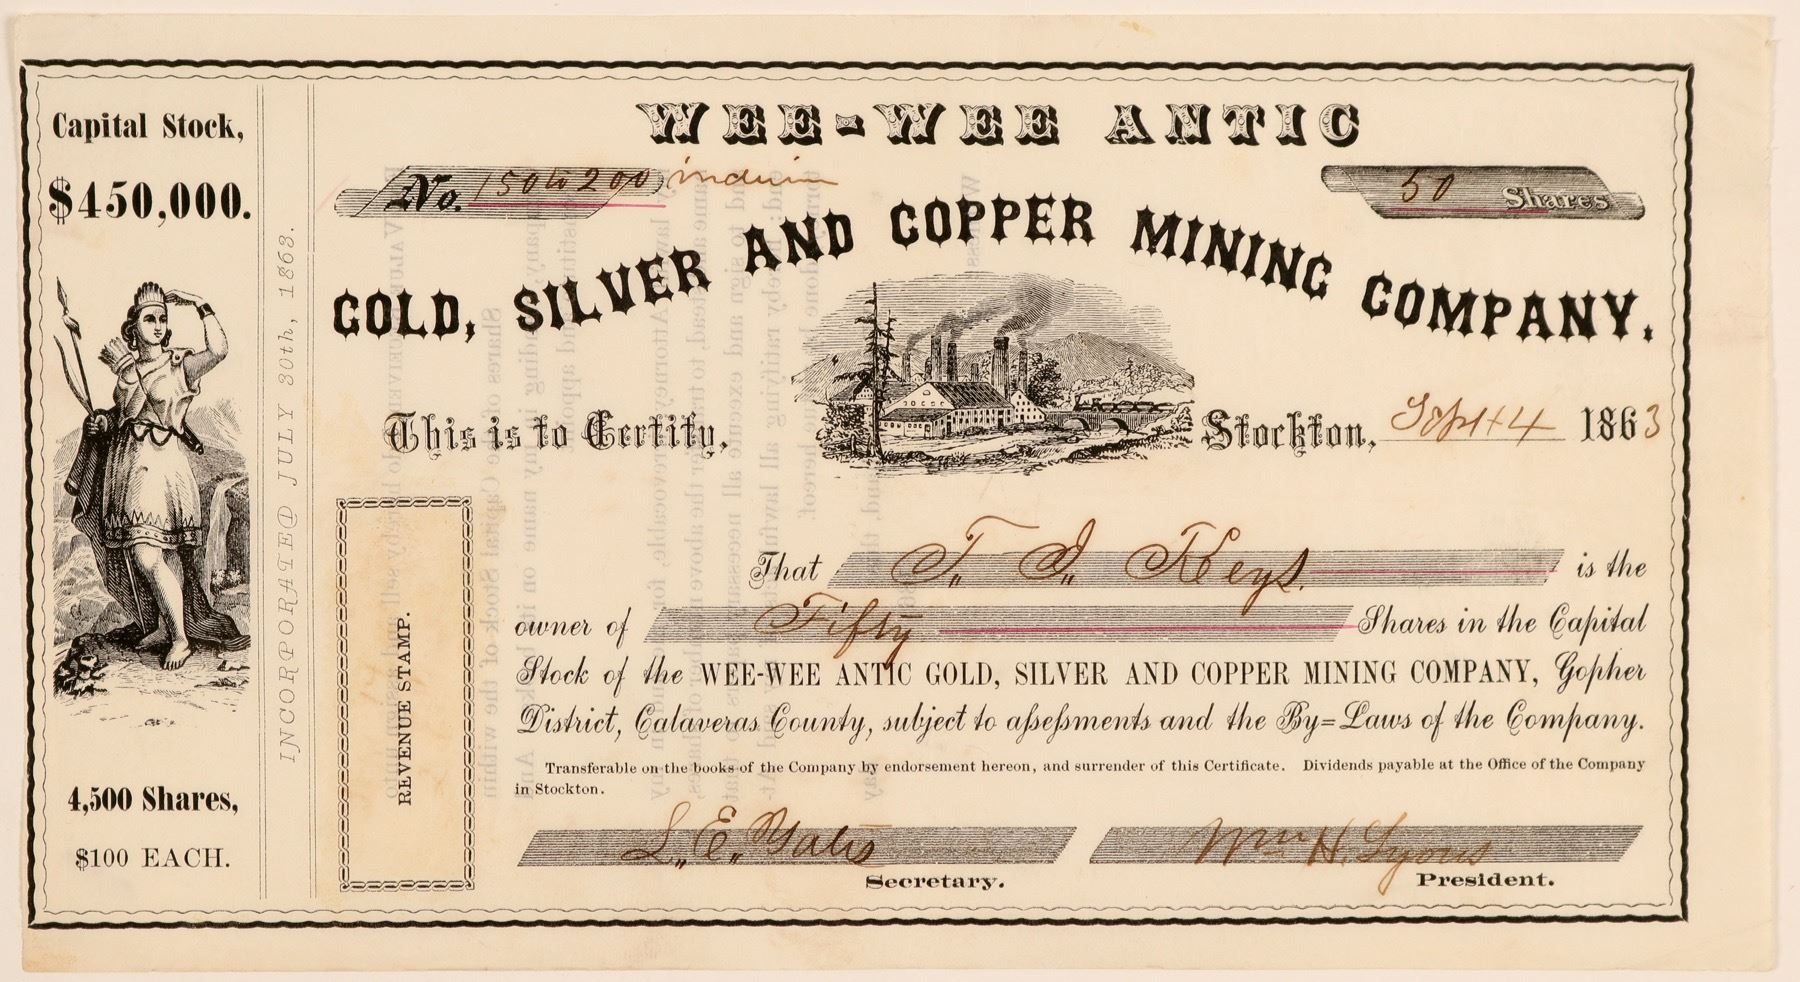 Capital Stock,
$450,000.
4,500 Shares,
$100 EACH.
INCORPORATED JULY 30th, 1863.
WEE-WEE ANTIC
No. 150 to 200
50 Shares
GOLD, SILVER AND COPPER MINING COMPANY.
This is to Certify,
Stockton, Sept 4 1863
REVENUE STAMP.
That T. I. Keys. is the
owner of Fifty Shares in the Capital
Stock of the WEE-WEE ANTIC GOLD, SILVER AND COPPER MINING COMPANY, Gopher
District, Calaveras County, subject to aſseſsments and the By=Laws of the Company.
Transferable on the books of the Company by endorsement hereon, and surrender of this Certificate. Dividends payable at the Office of the Company
in Stockton.
L. E. Yates
Secretary.
Wm H. Lyons
President.